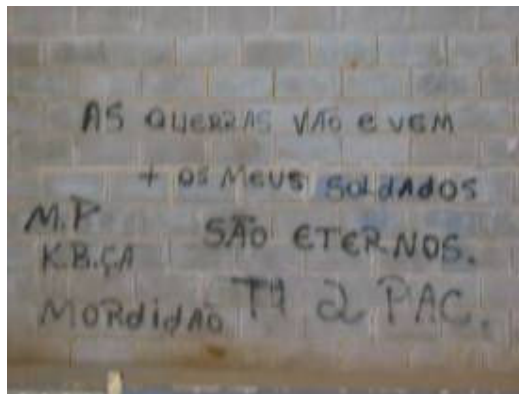 AS GUERRAS VÃO E VEM
+ OS MEUS SOLDADOS
SÃO ETERNOS.
M.P
K.B.ÇA
MORdidÃO
2 PAC.